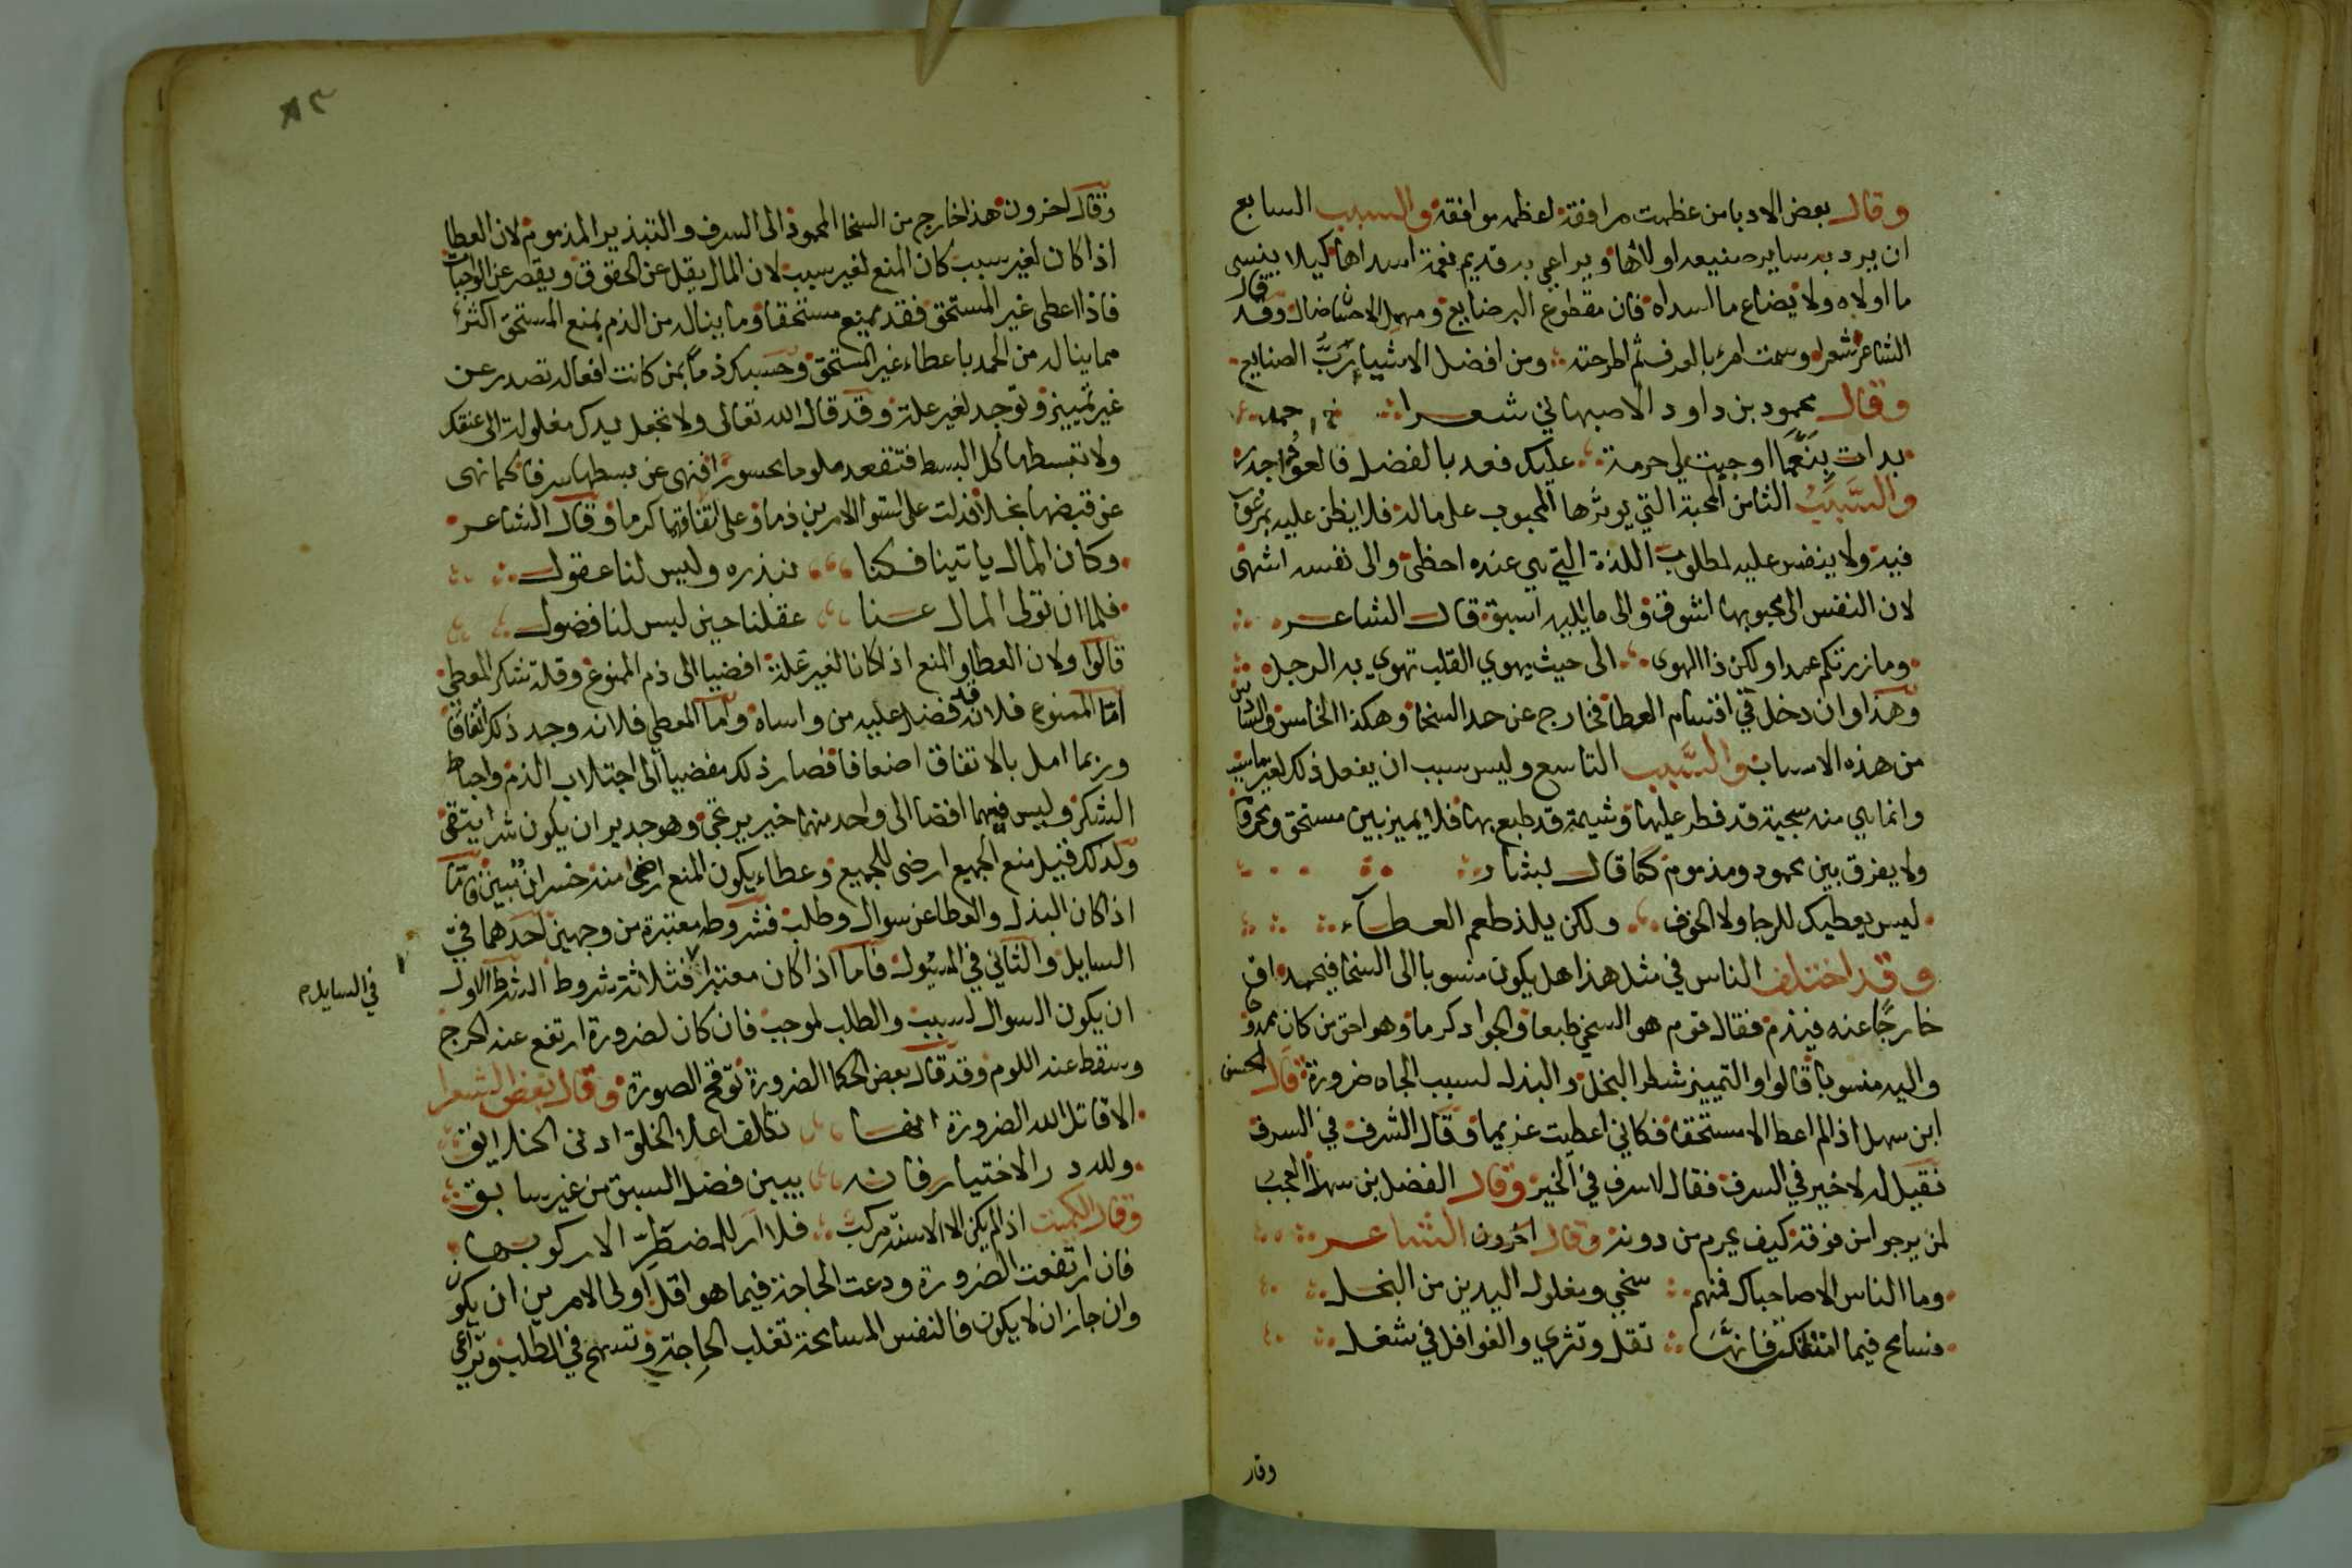 وقال بعض الادبا من عظمت مرافقة لعظم موافقة والسبب السابع
ان يرد به ساير صنيعه اولاها ويراعي به قديم نعمة اسداها كيلا ينسى
ما اولاه ولا يضاع ما اسداه فان مقطوع البر ضايع ومهمل الاحسان ضال وقد قال
الشاعر شعرا وسمت امرءا بالعرف ثم اطرحته ومن افضل الاشياء ربّ الصنايع
وقال محمود بن داود الاصبهاني شعرا
بدات بنعما اوجبت لي حرمة عليك فعد بالفضل فالعود احمد
والسبب الثامن المحبة التي يوثرها المحبوب على ماله فلا يظن عليه بمرغوب
فيه ولا ينفس عليه لمطلوب اللذة التي هي عنده احظى والى نفسه اشهى
لان النفس الى محبوبها اشوق والى ما يليه اسبق قال الشاعر
وما زرتكم عمدا ولكن ذا الهوى الى حيث يهوي القلب تهوي به الرجل
وهذا وان دخل في اقسام العطا فخارج عن حد السخا وهكذا الخامس والسادس
من هذه الاسباب والسبب التاسع وليس سبب ان يفعل ذلك لغير ما سبب
وانما هي منه سجية قد فطر عليها وشيمة قد طبع بها فلا يميز بين مستحق ومحروم
ولا يفرق بين محمود ومذموم كما قال بشار
ليس يعطيك للرجا ولا الخوف ولكن يلذ طعم العطاء
وقد اختلف الناس في مثل هذا هل يكون منسوبا الى السخا فيحمد او
خارجًا عنه فيذم فقال قوم هو السخي طبعا والجواد كرما وهو احق من كان ممدوحا
واليه منسوبا قالوا والتمييز شطر البخل والبذل لسبب الجاه ضرورة قال الحسن
ابن سهل اذا لم اعط الا مستحقا فكاني اعطيت غريما وقال الشرف في السرف
فقيل له لا خير في السرف فقال لا سرف في الخير وقال الفضل بن سهل العجب
لمن يرجو من فوقه كيف يحرم من دونه وقال اخرون الشاعر
وما الناس الا صاحباك فمنهم سخي ومغلول اليدين من البخل
فسامح فيما امتلكت فانها تقل وتثري والغوافل في شغل
وقار
وقال اخرون هذا خارج من السخا المحمود الى السرف والتبذير المذموم لان العطا
اذا كان لغير سبب كان المنع لغير سبب لان المال يقل عن الحقوق ويقصر عن الواجبات
فاذا اعطى غير المستحق فقد يمنع مستحقا وما يناله من الذم بمنع المستحق اكثر
مما يناله من الحمد باعطاء غير المستحق وحسبك ذمّا بمن كانت افعاله تصدر عن
غير تمييز وتوجد لغير علة وقد قال الله تعالى ولا تجعل يدك مغلولة الى عنقك
ولا تبسطها كل البسط فتقعد ملوما محسورًا فنهى عن بسطها سرفا كما نهى
عن قبضها بخلا فدلت على استوا الامرين ذما وعلى اتفاقهما كرما وقال الشاعر
وكان المال ياتينا فكنا نبذره وليس لنا عقول
فلما ان تولى المال عنا عقلنا حين ليس لنا فضول
قالوا ولان العطا والمنع اذا كانا لغير علة افضيا الى ذم الممنوع وقلة شكر المعطي
امّا الممنوع فلانه قد فضل عليه من واساه واما المعطي فلانه وجد ذلك اتفاقًا
وربما امل بالاتفاق اضعافا فصار ذلك مفضيا الى اجتلاب الذم واحباط
الشكر وليس فيهما افضا الى واحد منهما خير يرتجى وهو جدير ان يكون شرا يتقى
وكذلك قيل منع الجميع ارضى للجميع وعطاء يكون المنع ارضى منه خسران مبين فامّا
اذا كان البذل والعطا عن سوال وطلب فشروطه معتبرة من وجهين احدهما في
السايل والثاني في المسئول فاما اذا كان معتبرا فثلاثة شروط الشرط الاول
في السايل م
ان يكون السوال لسبب والطلب لموجب فان كان لضرورة ارتفع عنه الحرج
وسقط عنه اللوم وقد قال بعض الحكما الضرورة توقح الصورة وقال بعض الشعرا
الا قاتل الله الضرورة انها تكلف اعلا الخلق ادنى الخلايق
ولله در الاختيار فانه يبين فضل السبق من غير سابق
وقال الكميت اذا لم يكن الا الاسنة مركب فلا ار للمضطرّ الا ركوبها
فان ارتفعت الضرورة ودعت الحاجة فيما هو اقل اولى الامرين ان يكون
وان جاز ان لا يكون فالنفس المسامحة تغلب الحاجة وتسمح في الطلب وتراعي